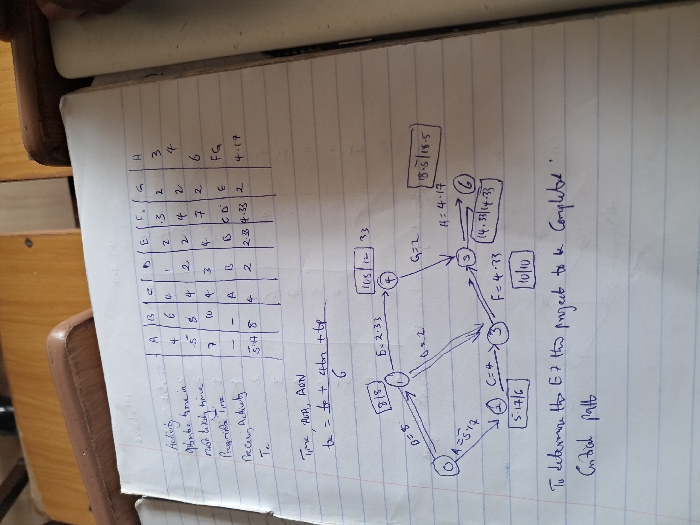 Activity A B C D E F G H
Optimistic time 4 6 4 1 2 3 2 3
most likely time 5 8 4 2 2 4 2 4
Pessimistic time 7 10 4 3 4 7 2 6
Preceding Activity - - A B B CD E FG
Te 5.17 8 4 2 2.33 4.33 2 4.17
Time, AOA, AON
te = to + 4tm + tp
6
10.33 | 12.33
4
18.5 | 18.5
E = 2.33
G = 2
H = 4.17
8 | 8
1
5
6
14.33 | 14.33
B = 8
D = 2
F = 4.33
0
A = 5.17
2
C = 4
3
10 | 10
5.17 | 6
To determine the E7 this project to be Completed.
Critical path